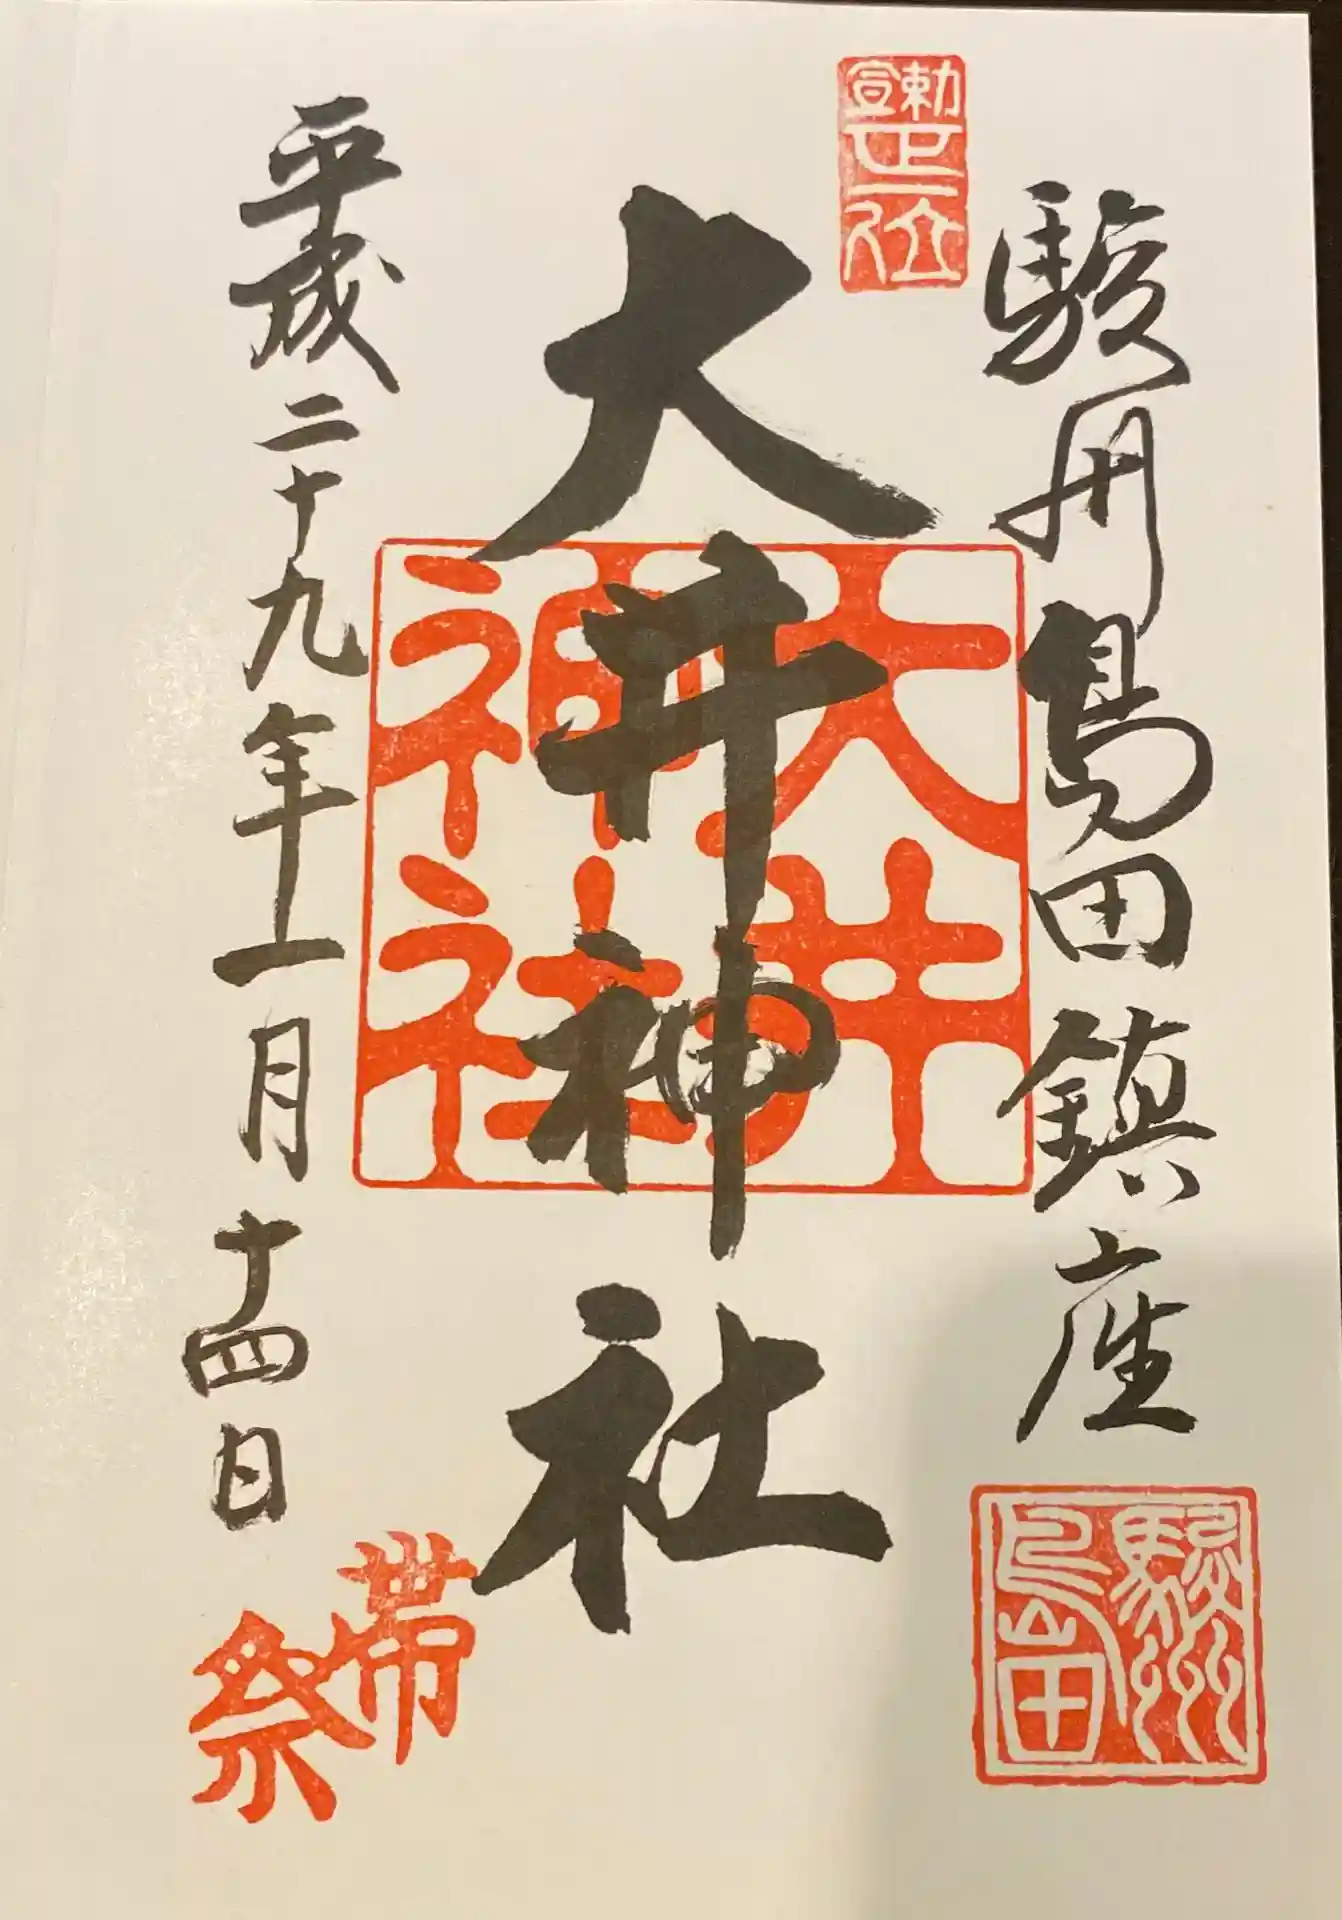 駿州島田鎮座
勅宣正一位
大井神社
大井神社
平成二十九年十一月十四日
駿州島田
帯祭